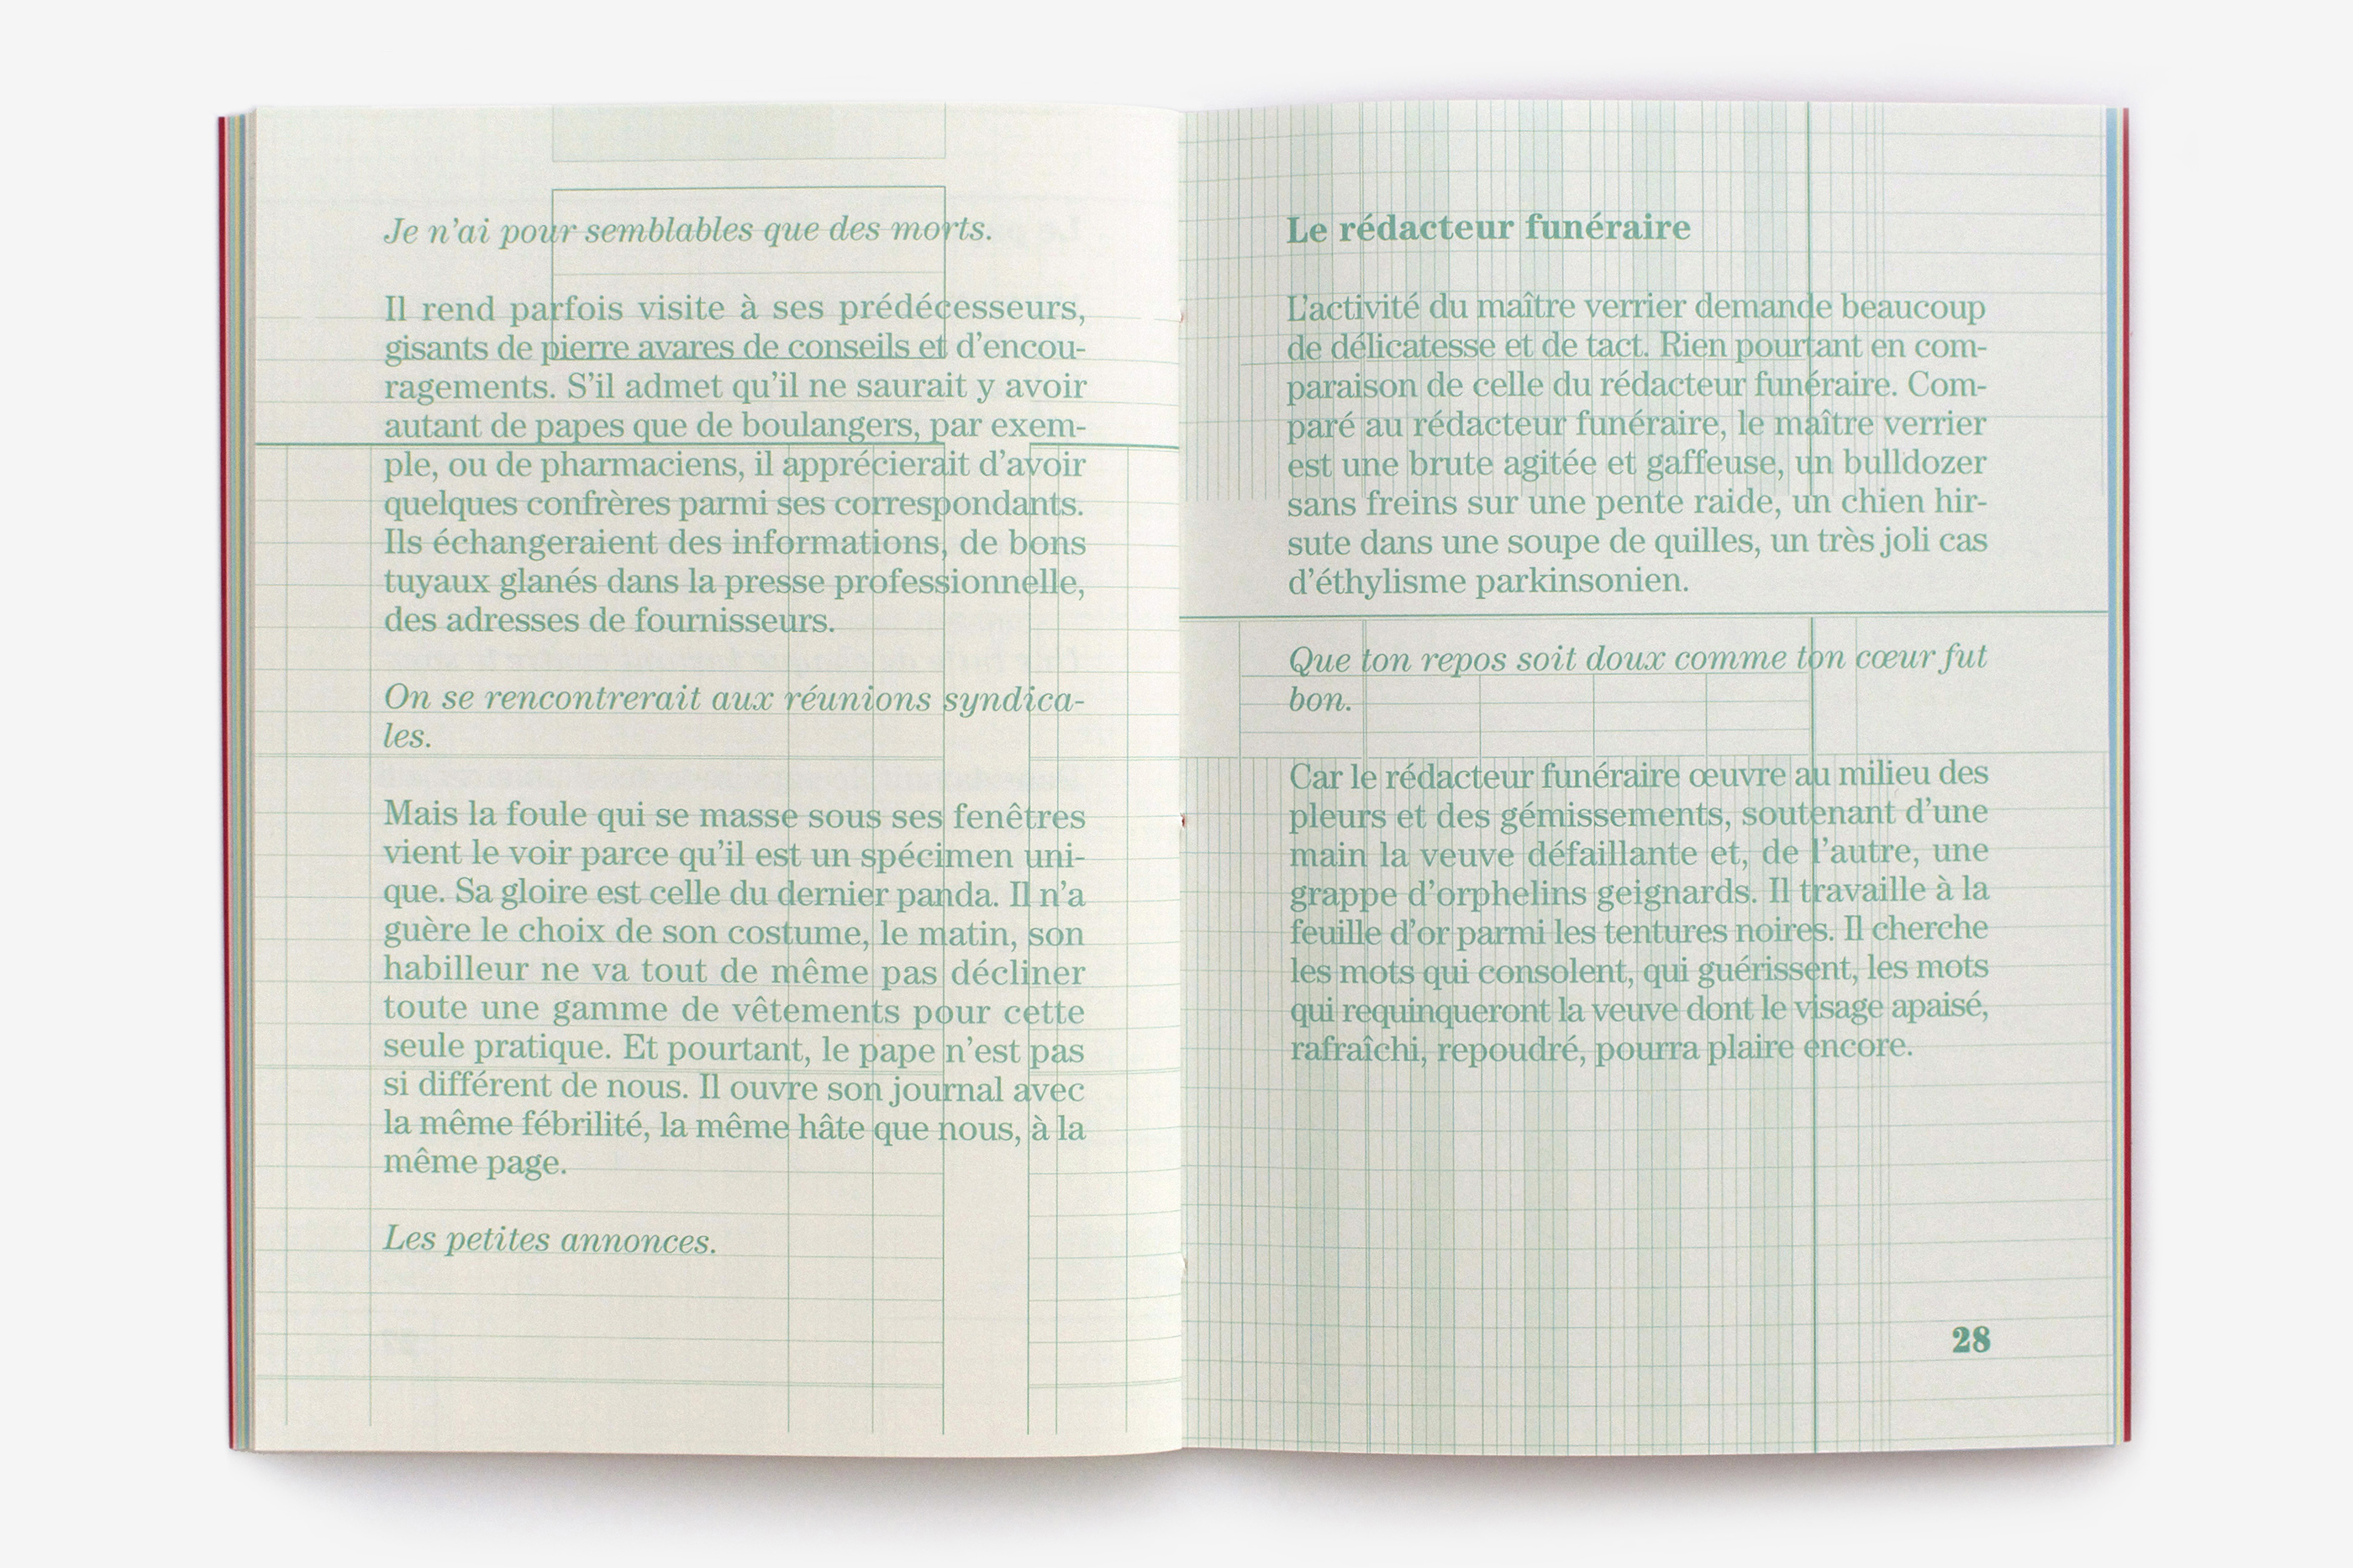 Je n’ai pour semblables que des morts.
Il rend parfois visite à ses prédécesseurs,
gisants de pierre avares de conseils et d’encou-
ragements. S’il admet qu’il ne saurait y avoir
autant de papes que de boulangers, par exem-
ple, ou de pharmaciens, il apprécierait d’avoir
quelques confrères parmi ses correspondants.
Ils échangeraient des informations, de bons
tuyaux glanés dans la presse professionnelle,
des adresses de fournisseurs.
On se rencontrerait aux réunions syndica-
les.
Mais la foule qui se masse sous ses fenêtres
vient le voir parce qu’il est un spécimen uni-
que. Sa gloire est celle du dernier panda. Il n’a
guère le choix de son costume, le matin, son
habilleur ne va tout de même pas décliner
toute une gamme de vêtements pour cette
seule pratique. Et pourtant, le pape n’est pas
si différent de nous. Il ouvre son journal avec
la même fébrilité, la même hâte que nous, à la
même page.
Les petites annonces.
Le rédacteur funéraire
L’activité du maître verrier demande beaucoup
de délicatesse et de tact. Rien pourtant en com-
paraison de celle du rédacteur funéraire. Com-
paré au rédacteur funéraire, le maître verrier
est une brute agitée et gaffeuse, un bulldozer
sans freins sur une pente raide, un chien hir-
sute dans une soupe de quilles, un très joli cas
d’éthylisme parkinsonien.
Que ton repos soit doux comme ton cœur fut
bon.
Car le rédacteur funéraire œuvre au milieu des
pleurs et des gémissements, soutenant d’une
main la veuve défaillante et, de l’autre, une
grappe d’orphelins geignards. Il travaille à la
feuille d’or parmi les tentures noires. Il cherche
les mots qui consolent, qui guérissent, les mots
qui requinqueront la veuve dont le visage apaisé,
rafraîchi, repoudré, pourra plaire encore.
28